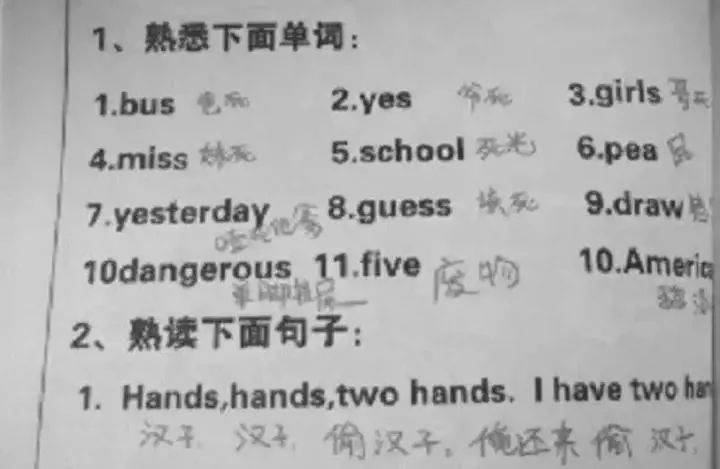 1、熟悉下面单词：
1.bus 2.yes 爷死 3.girls 哥死
4.miss 妹死 5.school 死光 6.pea 屁
7.yesterday 8.guess 9.draw
10dangerous 11.five 废物 10.Americ
单脚拉屎
2、熟读下面句子：
1. Hands,hands,two hands. I have two han
汉子 汉子 偷汉子。俺还来偷汉子